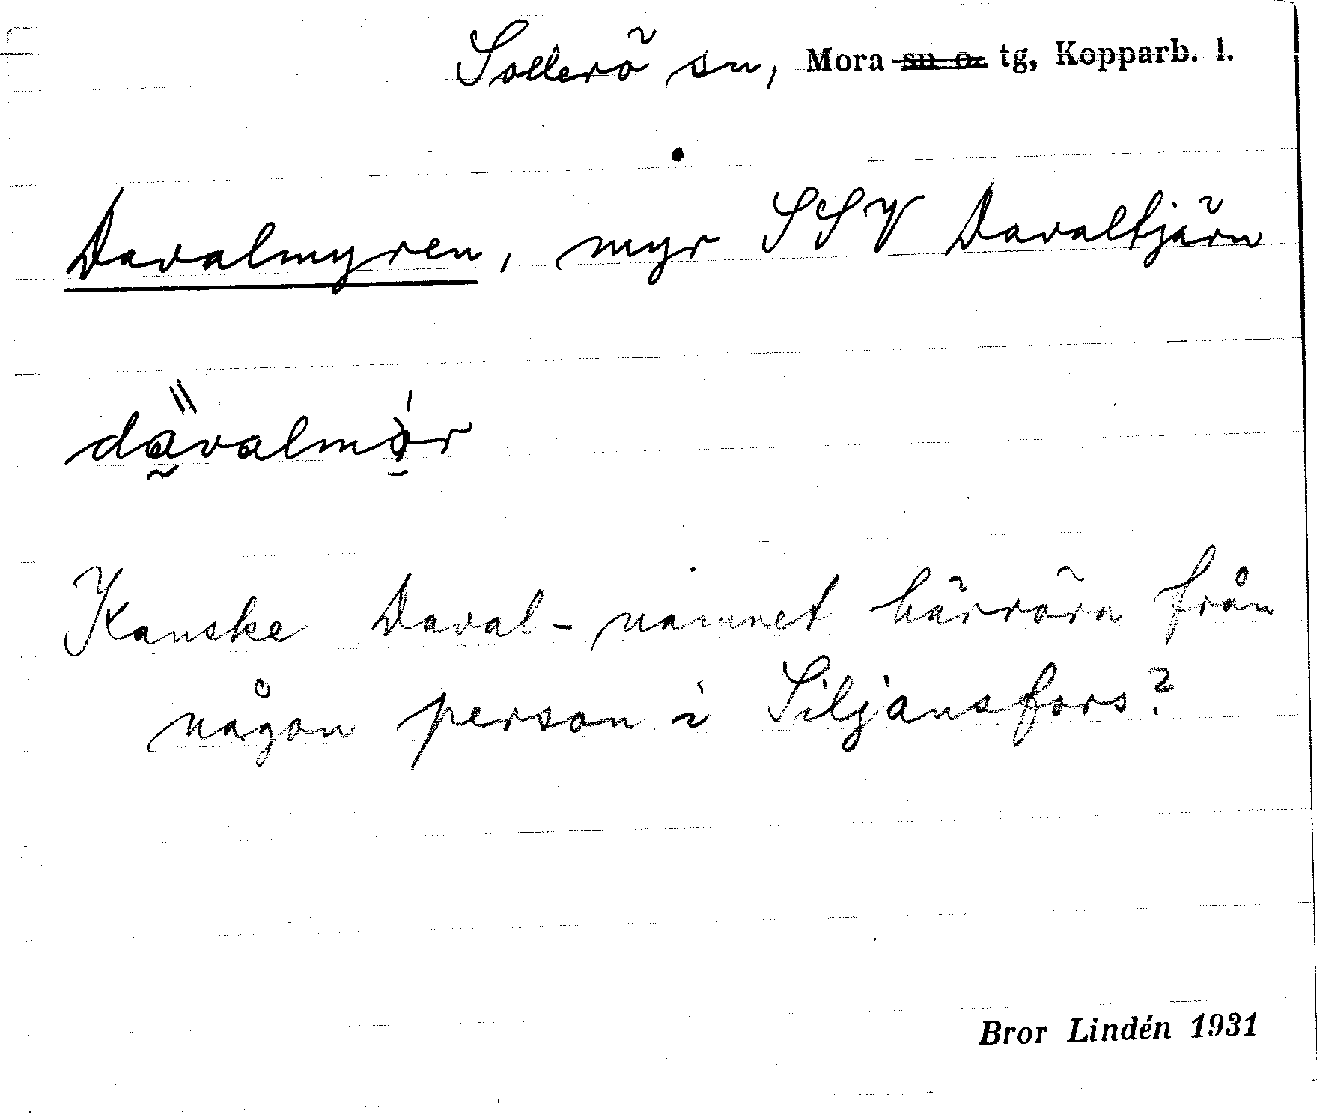 Sollerö sn, Mora sn o. tg, Kopparb. l.
Davalmyren, myr SSV Davaltjärn
davalmör
Kanske Daval-namnet härröra från
någon person i Siljansfors?
Bror Lindén 1931